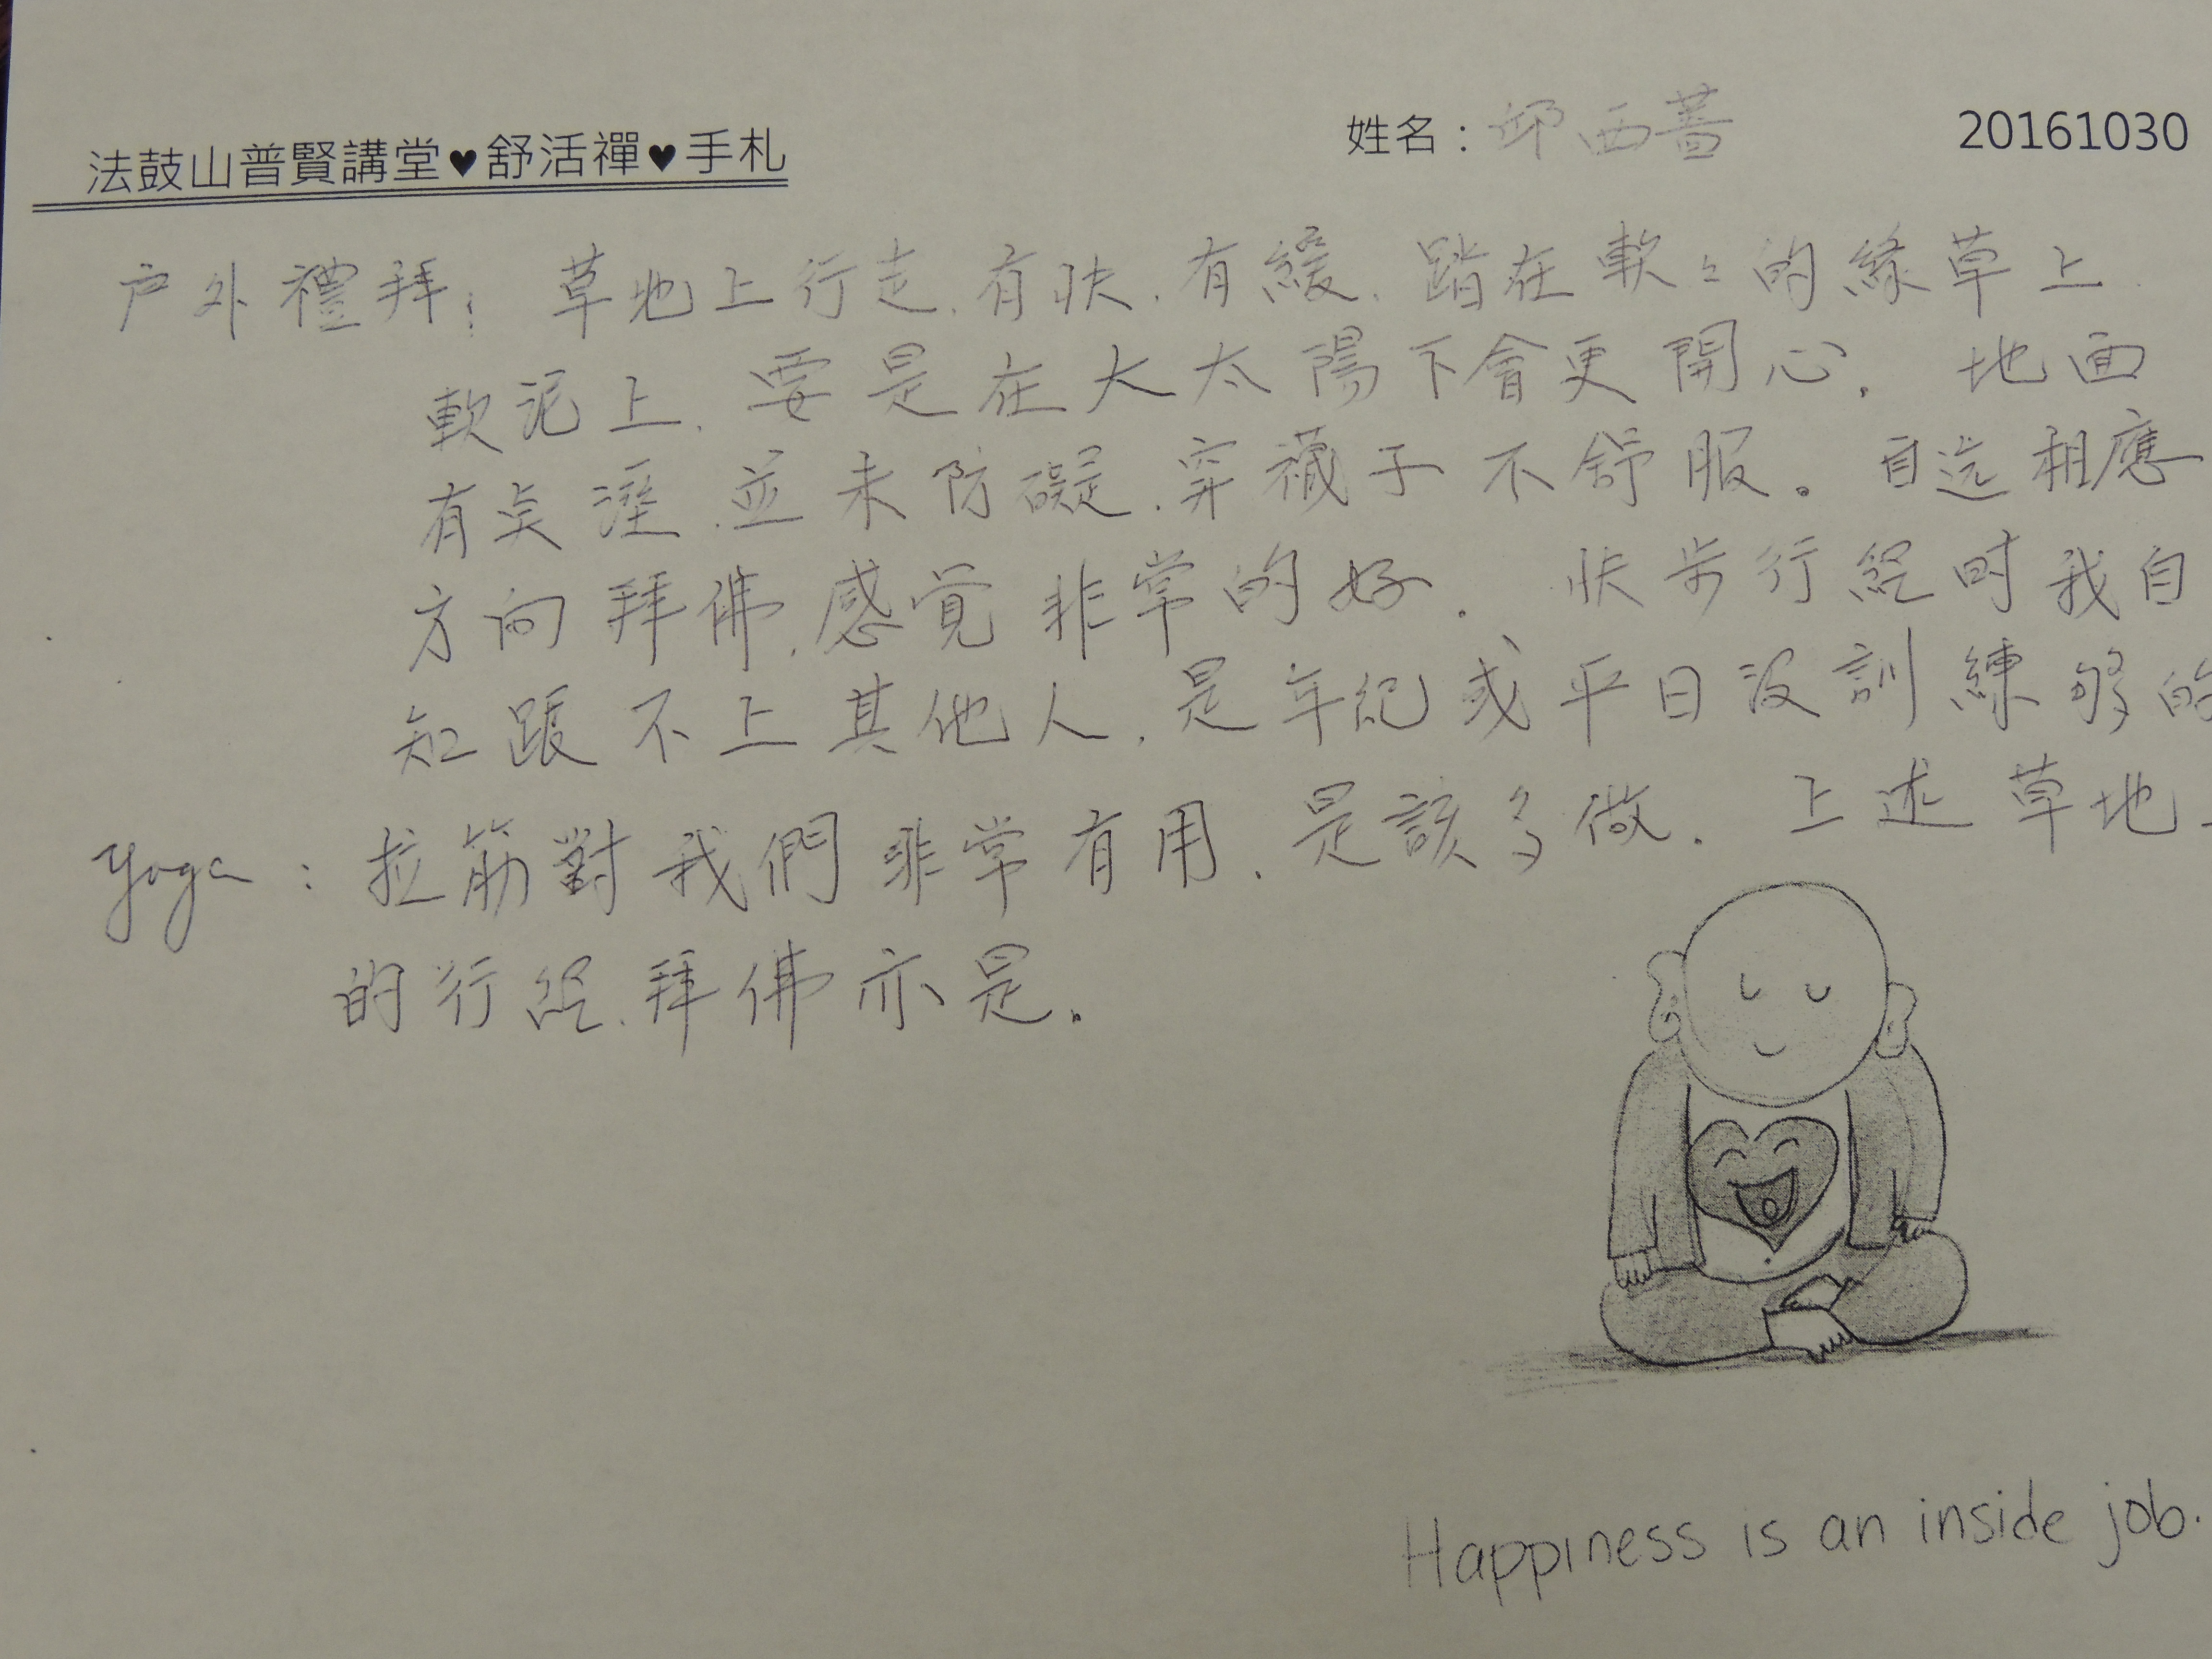 法鼓山普賢講堂♥舒活禪♥手札 姓名：邱西薔 20161030
户外禮拜: 草地上行走,有快,有緩,踏在軟々的綠草上
軟泥上,要是在大太陽下會更開心. 地面
有点溼,並未防礙,穿襪子不舒服。自选相應
方向拜佛,感覚非常的好. 快步行經时我自
知跟不上其他人,是年紀或平日没訓練够的
yoga : 拉筋對我們非常有用,是該多做. 上述草地
的行經,拜佛亦是.
Happiness is an inside job.